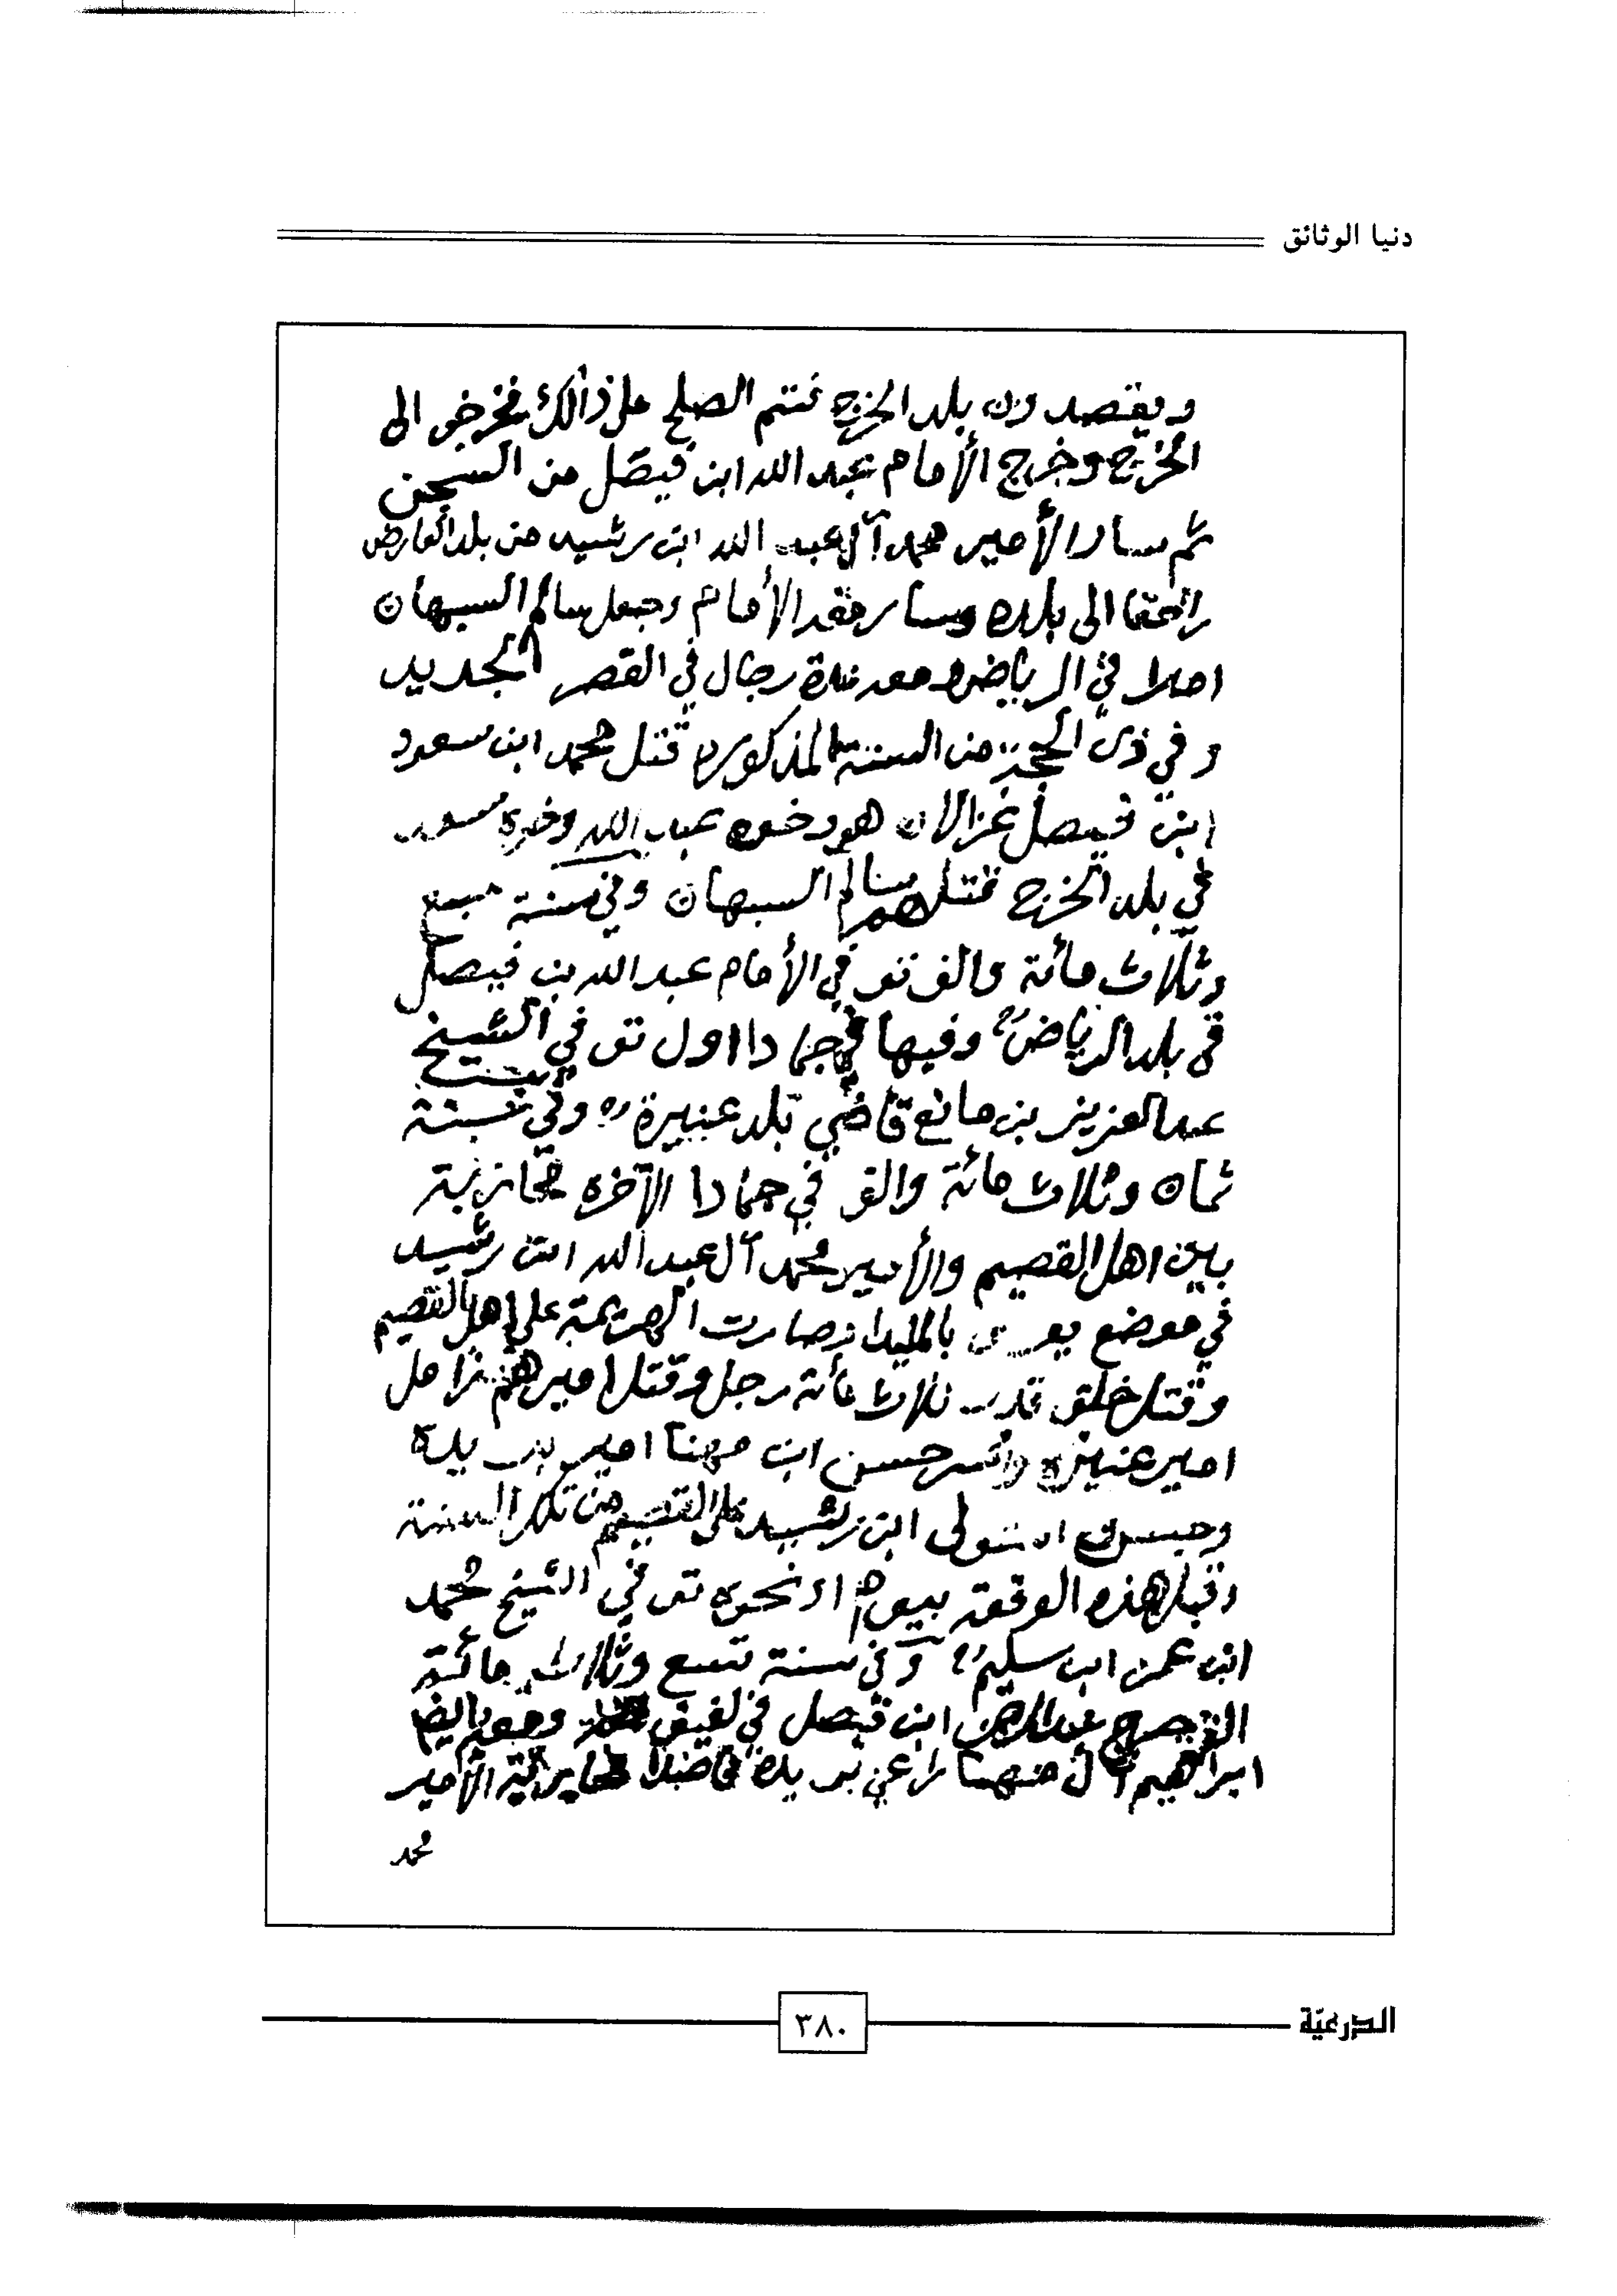 دنيا الوثائق
ويقصدون بلد الخرج فتم الصلح على ذالك فخرجو الى
الخرج وخرج الأمام عبد الله ابن فيصل من السجن
ثم سار الأمير محمد آل عبد الله ابن رشيد من بلد العارض
الى بلده وسار معه الإمام وجعل سالم السبهان
في الرياض ومعه عدة رجال في القصر الجديد
وفي ذى الحجة من السنة المذكوره قتل محمد ابن سعود
ابن فيصل غزالان هو وخوه عبد الله وخوه سعد
في بلد الخرج قتلهم سالم السبهان وفي سنة سبع
وثلاث مائة والف توفي الأمام عبد الله بن فيصل
في بلد الرياض وفيها في جمادا اول توفي الشيخ
عبد العزيز بن مانع قاضي بلد عنيزة وفي سنة
ثمان وثلاث مائة والف في جمادا الآخره
بين اهل القصيم والأمير محمد آل عبد الله ابن رشيد
في موضع بالمليدا وصارت الهزيمة على اهل القصيم
وقتل خلق قدر ثلاث مأئة رجل وقتل اميرهم زامل
امير عنيزه واسر حسن ابن مهنا امير بريدة
وحبس واستولى ابن رشيد على القصيم من تلك السنة
وقبل هذه الوقعة بيوم او نحوه توفي الشيخ محمد
ابن عمر ابن سليم وفي سنة تسع وثلاث مائة
الف عبد الرحمن ابن فيصل في لفيف ومعه ايضا
ابراهيم آل مهنا راعي بريدة الأمير
محمد
الدرعيّة
٣٨٠